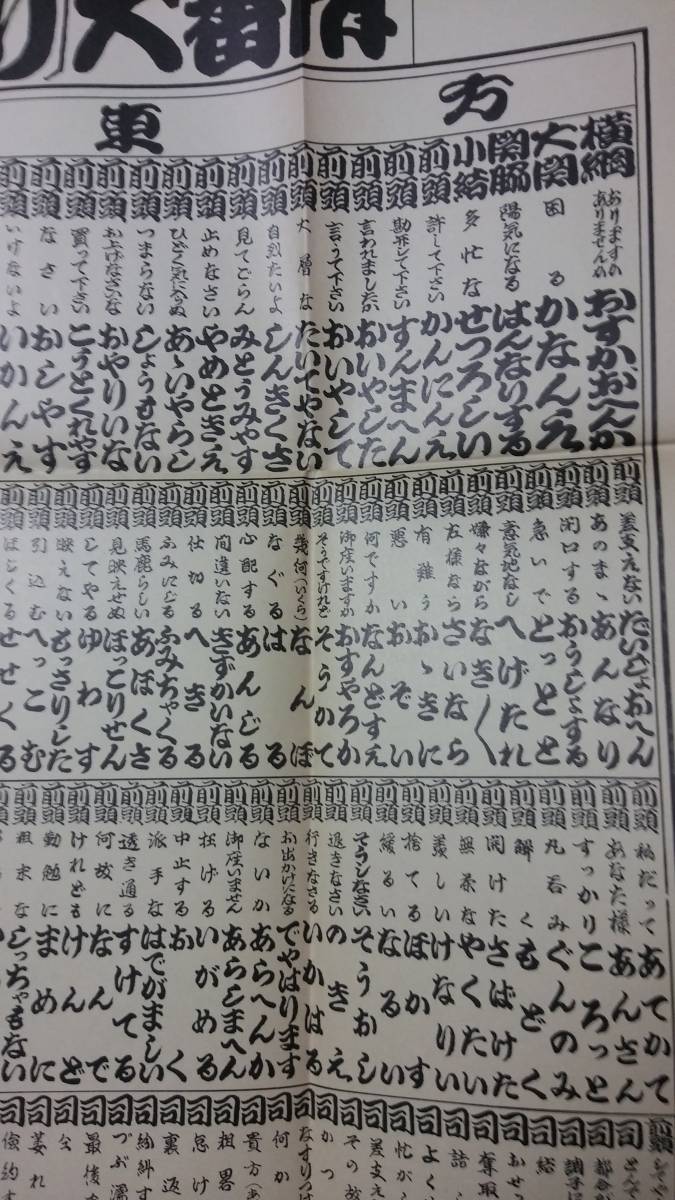 大番付
東
方
横綱 ありますの ありませんの おすかおへんか
大関 困る かなんえ
関脇 陽気になる はんなりする
小結 多忙な せつろしい
前頭 許して下さい かんにんえ
前頭 勘弁して下さい すんまへん
前頭 言われましたか おいやした
前頭 言うて下さい おいやして
前頭 大層な たいてやない
前頭 自烈たいよ しんきくさ
前頭 見てごらん みとうみやす
前頭 止めなさい やめときえ
前頭 ひどく気に入らぬ あゝいやらし
前頭 つまらない しょうもない
前頭 お上げなさいな おやりいな
前頭 買って下さい こうとくれやす
前頭 なさい おしやす
前頭 いけないよ いかんえ
前頭 差支えない だいじょおへん
前頭 あのまゝ あんなり
前頭 閉口する おうじょする
前頭 急いで とっとと
前頭 意気地なし へげたれ
前頭 嫌々ながら なき〱
前頭 左様なら さいなら
前頭 有難う おゝきに
前頭 悪い おぞい
前頭 何ですか なんどすえ
前頭 御座いますか おすやろか
前頭 そうですけれど そうかて
前頭 幾何(いくら) なんぼ
前頭 なぐる はる
前頭 心配する あんじる
前頭 間違いない きずかいない
前頭 仕切る へきる
前頭 ふみにじる ふみちゃくる
前頭 馬鹿らしい あほくさ
前頭 見映えせぬ ほっこりせん
前頭 してやる ゆわす
前頭 映えない もっさりした
前頭 引込む へっこむ
前頭 ほじくる せせくる
前頭 私だって あてかて
前頭 あなた様 あんさん
前頭 すっかり ころっと
前頭 丸呑み ぐんのみ
前頭 解く もどく
前頭 開けた さばけた
前頭 無茶な やくたい
前頭 美しい けなりい
前頭 捨てる ほかす
前頭 緩るい なるい
前頭 そうしなさい そうおし
前頭 退きなさい のきえ
前頭 行きなさる いかはる
前頭 お出かけになる でやはります
前頭 ないか あらへんか
前頭 御座いません あらしまへん
前頭 抂げる いがめる
前頭 中止する おく
前頭 派手な はでがましい
前頭 透き通る すけてる
前頭 何故に なんで
前頭 けれども けんど
前頭 勤勉に まめに
前頭 粗末な しっちゃもない
前頭
司 都合
司 調子
司 結
司 奪取
司 詰
司 よく
司 忙が
司 差支え
司 その
司 かつ
司 なすりつけ
司 何か
司 貴方(あ
司 粗略
司 怠け
司 裏返
司 紛糾す
司 つぶ濡
司 最後
司
司 萎れ
司 倹約す